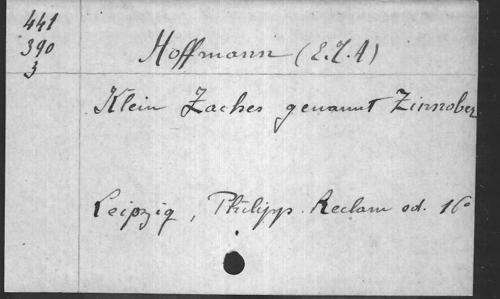 441
390
3
Hoffmann (E.T.A)
Klein Zaches genannt Zinnober
Leipzig, Philipp. Reclam od. 16°